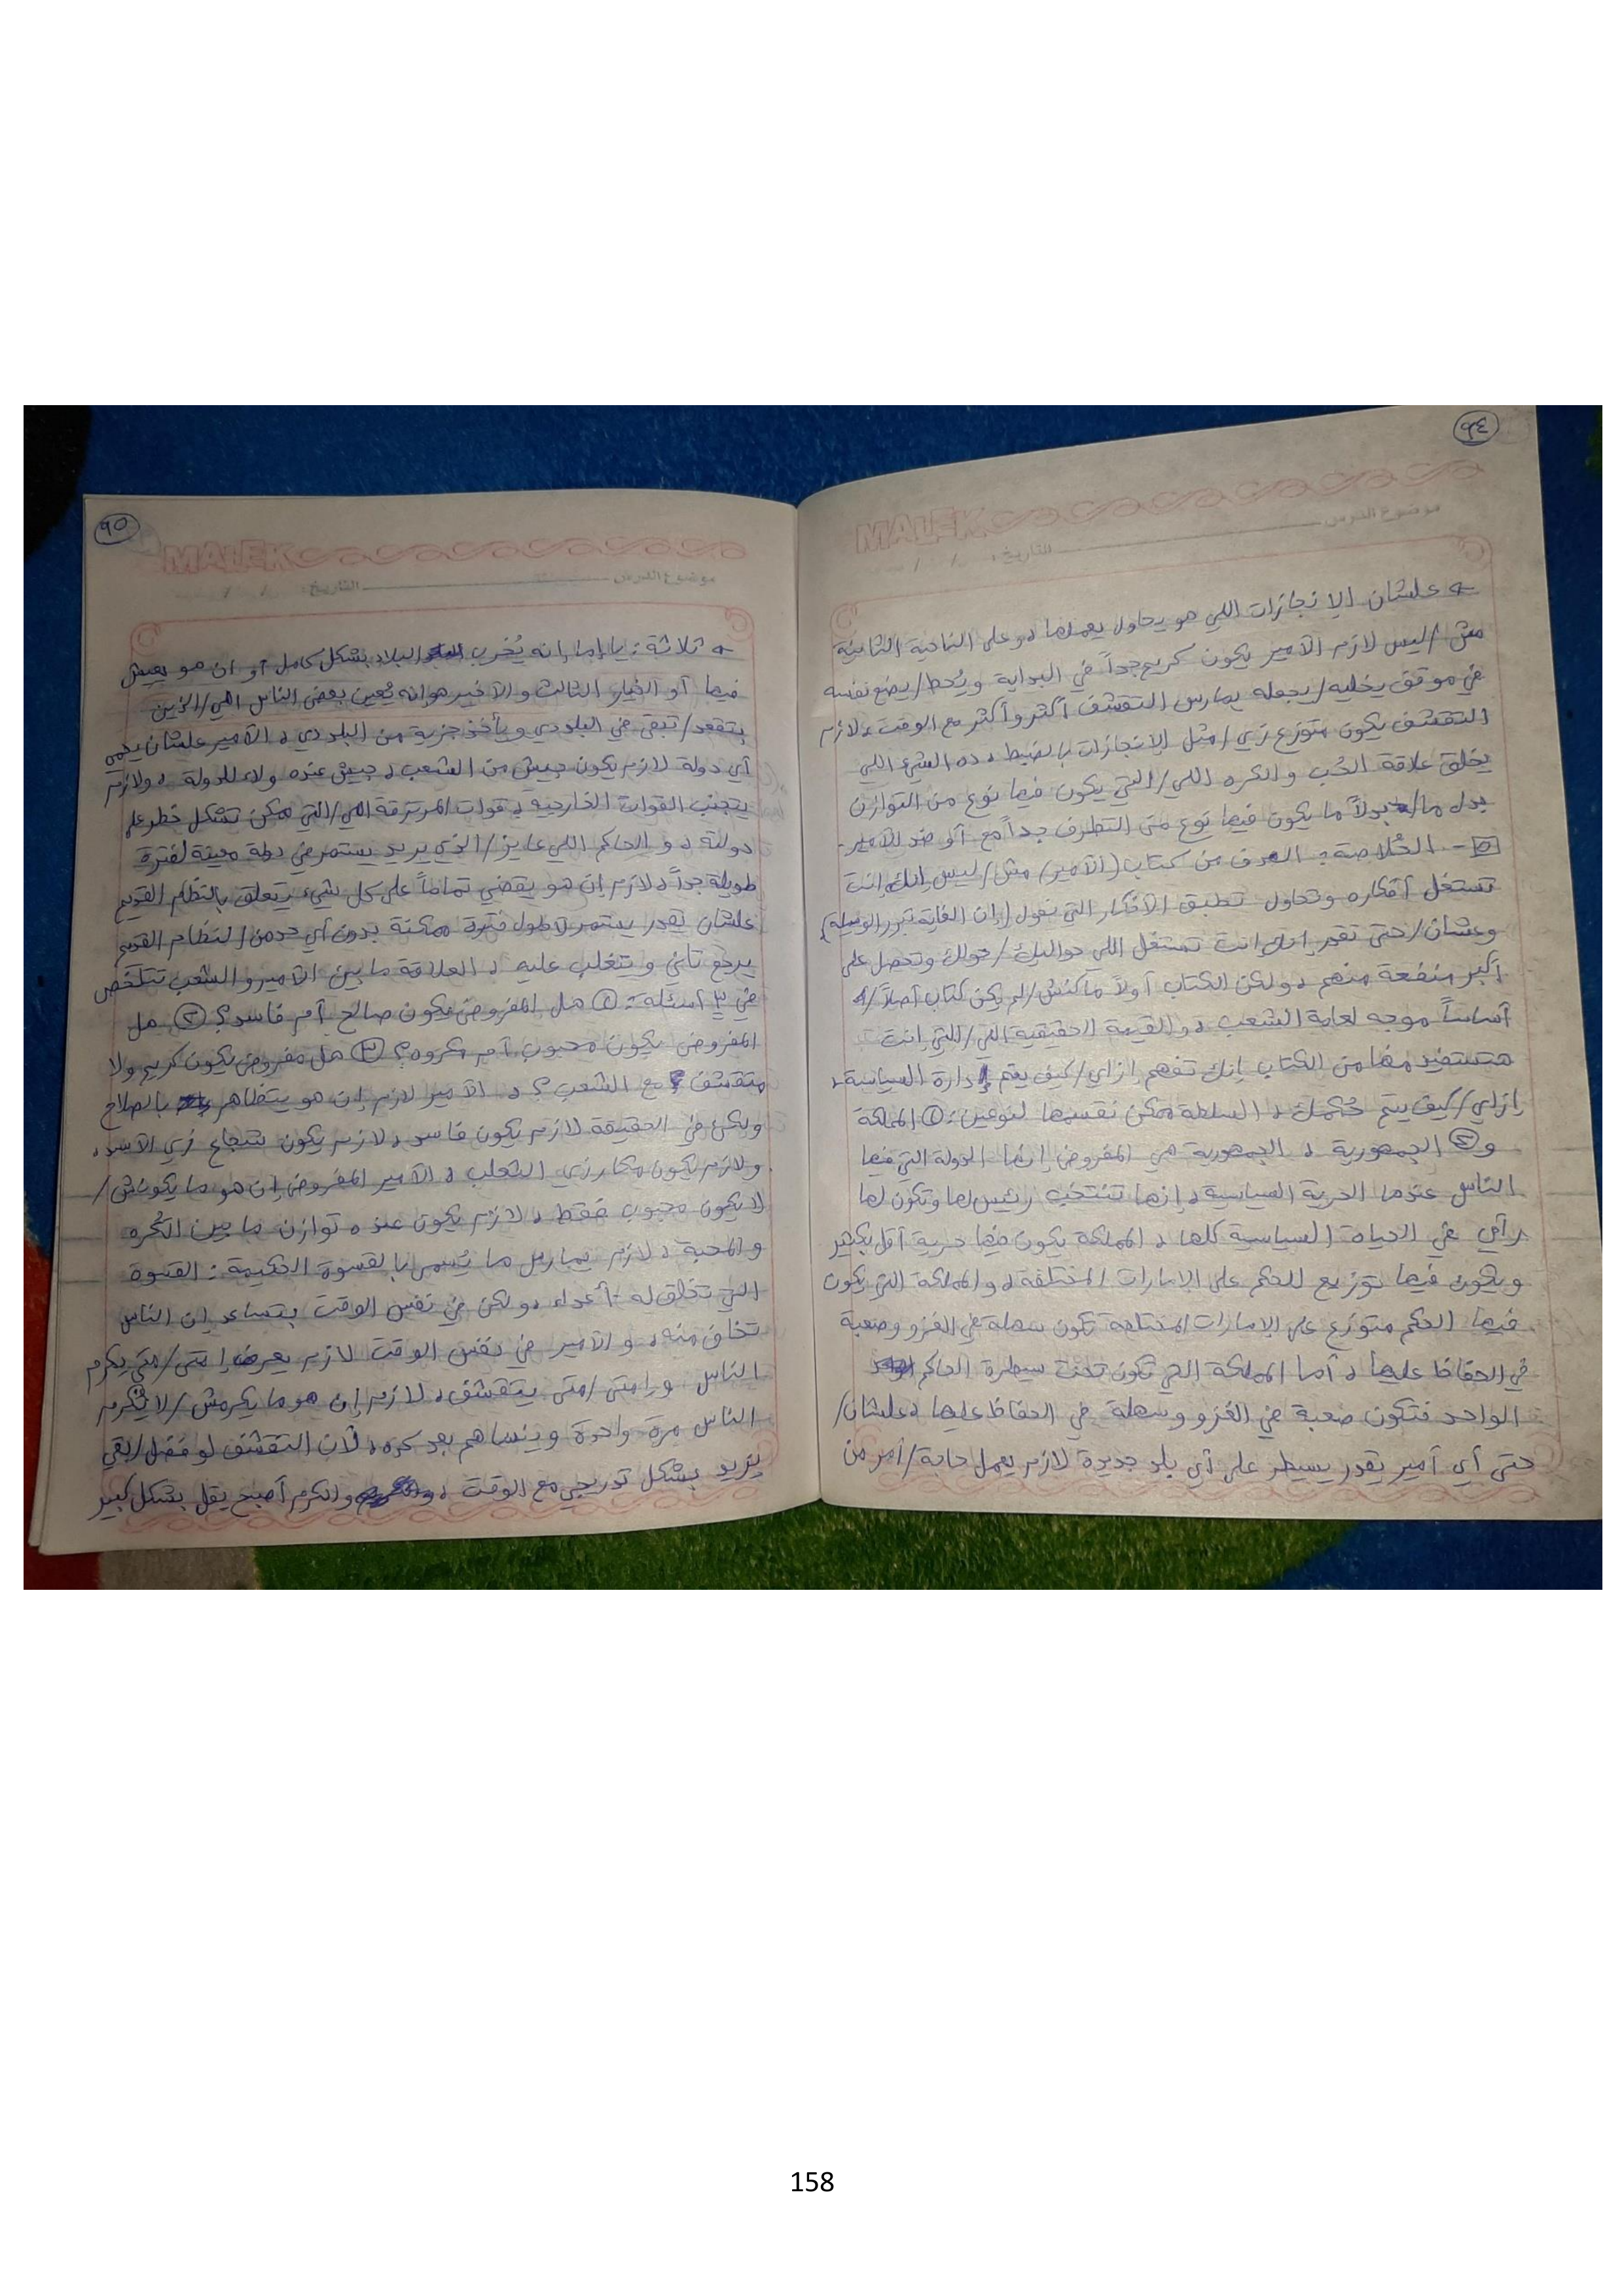 ٩٤
MALEK
موضوع الدرس التاريخ: / /
← علشان الإنجازات اللي هو يحاول يعملها، وعلى الناحية الثانية
مش/ليس لازم الأمير يكون كريم جداً في البداية ويُحط/يضع نفسه
في موقف يخليه/يجعله يمارس التقشف أكثر وأكثر مع الوقت، لازم
التقشف يكون متوزع زي/مثل الإنجازات بالضبط، ده الشيء اللي
يخلق علاقة الحُب والكره اللي/التي يكون فيها نوع من التوازن
بدل ما/بدلاً ما يكون فيها نوع من التطرف جداً مع أو ضد الأمير.
٥- الخُلاصة: الهدف من كتاب (الأمير) مش/ليس إنك إنت
تستغل أفكاره وتحاول تطبيق الأفكار التي تقول (إن الغاية تبرر الوسيلة)
وعشان/حتى تقدر إنك إنت تستغل اللي حواليك/حولك وتحصل على
أكبر منفعة منهم، ولكن الكتاب أولاً ماكنش/لم يكن كتاب أصلاً/
أساساً موجه لعامة الشعب، والقيمة الحقيقية اللي/التي إنت
هتستفيد منها من الكتاب إنك تفهم إزاي/كيف يتم إدارة السياسة،
إزاي/كيف يتم حُكمك، السلطة ممكن نقسمها لنوعين: ① المملكة
و② الجمهورية، الجمهورية هي المفروض إنها الدولة التي فيها
الناس عندها الحرية السياسية، إنها تنتخب رئيس لها وتكون لها
رأي في الحياة السياسية كلها، المملكة يكون فيها حرية أقل بكثير
ويكون فيها توزيع للحكم على الإمارات المختلفة، والمملكة التي يكون
فيها الحكم متوزع على الإمارات المختلفة تكون سهلة في الغزو وصعبة
في الحفاظ عليها، أما المملكة التي تكون تحت سيطرة الحاكم
الواحد فتكون صعبة في الغزو وسهلة في الحفاظ عليها، علشان/
حتى أي أمير يقدر يسيطر على أي بلد جديدة لازم يعمل حاجة/أمر من
٩٥
MALEK
موضوع الدرس التاريخ: / /
← ثلاثة: يا إما إنه يُخرب البلاد بشكل كامل أو إن هو يعيش
فيها أو الخيار الثالث والأخير هو إنه يُعين بعض الناس اللي/الذين
بتقعد/تبقى في البلد دي ويأخذ جزية من البلد دي، الأمير علشان يحمي
أي دولة لازم يكون جيش من الشعب، جيش عنده ولاء للدولة، ولازم
يتجنب القوات الخارجية، قوات المرتزقة اللي/التي ممكن تشكل خطر على
دولته، والحاكم اللي عايز/الذي يريد يستمر في دولة معينة لفترة
طويلة جداً، لازم إن هو يقضي تماماً على كل شيء يتعلق بالنظام القديم
علشان يقدر يستمر لأطول فترة ممكنة بدون أي حد من النظام القديم
يرجع تاني ويتغلب عليه، العلاقة ما بين الأمير والشعب تتلخص
في ٣ أسئلة: ① هل المفروض يكون صالح أم فاسد؟ ② هل
المفروض يكون محبوب أم مكروه؟ ③ هل مفروض يكون كريم ولا
متقشف مع الشعب؟، الأمير لازم إن هو يتظاهر بالصلاح
ولكن في الحقيقة لازم يكون فاسد، لازم يكون شجاع زي الأسد،
ولازم يكون مكار زي الثعلب، الأمير المفروض إن هو ما يكونش/
لا يكون محبوب فقط، لازم يكون عنده توازن ما بين الكُره
والمحبة، لازم يمارس ما يُسمى بالقسوة الحكيمة: القسوة
التي تخلق له أعداء، ولكن في نفس الوقت بتساعد إن الناس
تخاف منه، والأمير في نفس الوقت لازم يعرف إمتى/متى يكرم
الناس وإمتى/متى يتقشف، لازم إن هو ما يكرمش/لا يُكرم
الناس مرة واحدة وينساهم بعد كده، لأن التقشف لو فضل/بقي
يزيد بشكل تدريجي مع الوقت، والكرم أصبح يقل بشكل كبير
158